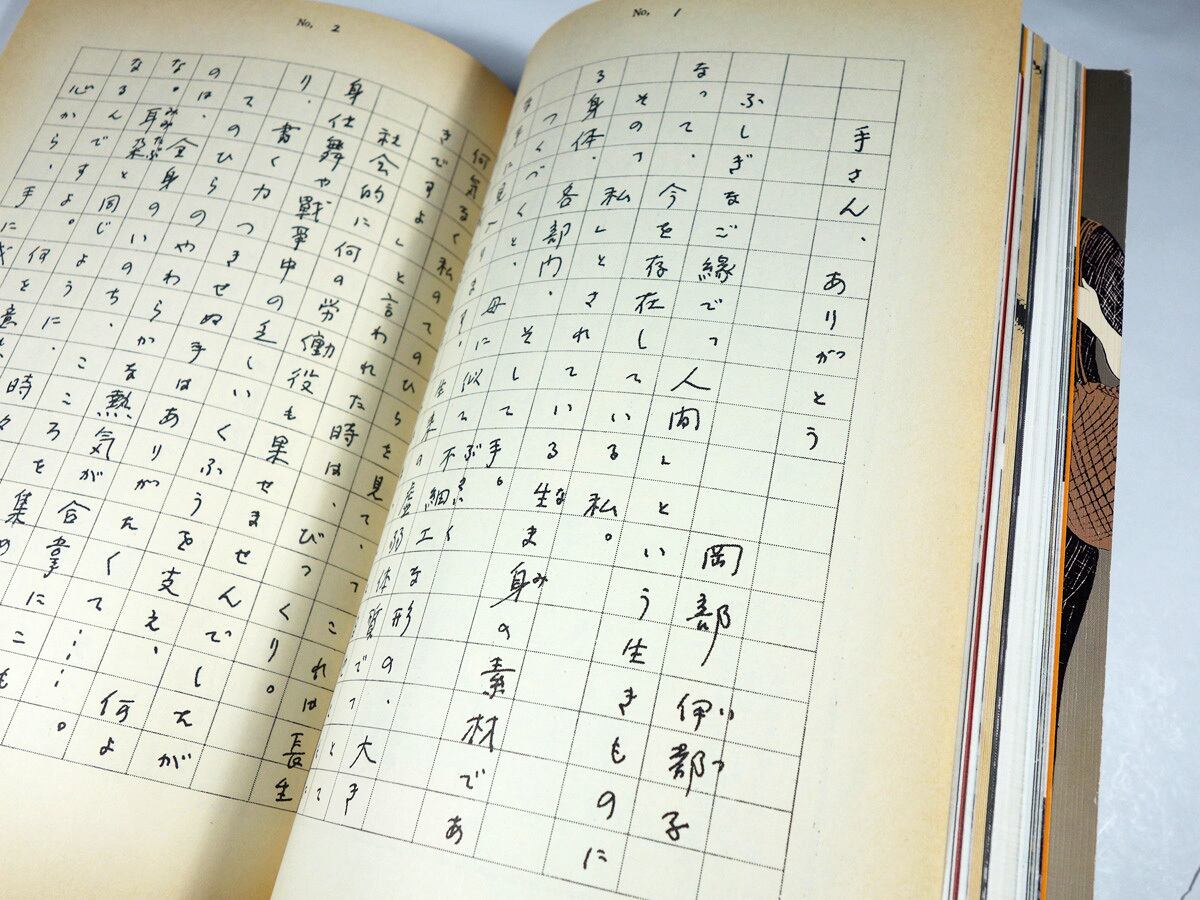 No. 1
手さん、ありがとう
岡部伊都子
ふしぎなご縁で、人間という生きものに
なって、今を存在している私。
その、私とされている生ま身の素材であ
る身体、各部門、そして手。
つくづくと、母に似て不細工な形の、大き
No. 2
何気なく私のてのひらを見て、これは長生
きですよと言われた時は、びっくり。
社会的に何の労働役も果せませんでしたが
身仕舞や戦争中の乏しいくふうを支え、何よ
り、書く力つきせぬ手はありがたくて……。
てのひらのやわらかな熱気が合掌にこも
のは、全身のいのち、こころを集め
な。耳朶と同じように、
なるんですよ。何を
心から、手に